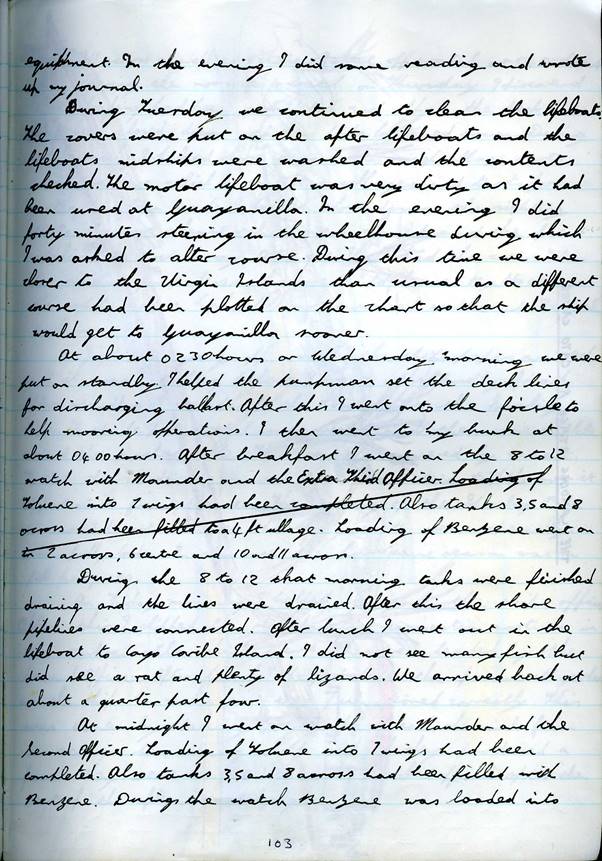 equipment. In the evening I did some reading and wrote
up my journal.
During Tuesday we continued to clean the lifeboats.
The covers were put on the after lifeboats and the
lifeboats midships were washed and the contents
checked. The motor lifeboat was very dirty as it had
been used at Guayanilla. In the evening I did
forty minutes steering in the wheelhouse during which
I was asked to alter course. During this time we were
closer to the Virgin Islands than usual as a different
course had been plotted on the chart so that the ship
would get to Guayanilla sooner.
At about 0230 hours on Wednesday morning we were
put on standby. I helped the pumpman set the deck lines
for discharging ballast. After this I went onto the fo'csle to
help mooring operations. I then went to my bunk at
about 0400 hours. After breakfast I went on the 8 to 12
watch with Maunder and the Extra Third Officer. Loading of
Toluene into 7 wings had been completed. Also tanks 3,5 and 8
across had been filled to a 4 ft ullage. Loading of Benzene went on
to 2 across, 6 centre and 10 and 11 across.
During the 8 to 12 that morning tanks were finished
draining and the lines were drained. After this the shore
pipelines were connected. After lunch I went out in the
lifeboat to Cayo Caribe Island. I did not see many fish but
did see a rat and plenty of lizards. We arrived back at
about a quarter past four.
At midnight I went on watch with Maunder and the
Second Officer. Loading of Toluene into 7 wings had been
completed. Also tanks 3,5 and 8 across had been filled with
Benzene. During the watch Benzene was loaded into
103